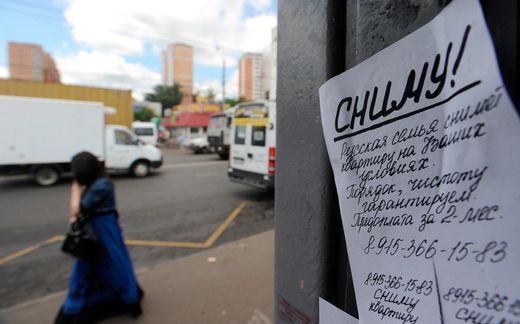 СНИМУ!
Русская семья снимет
квартиру на Ваших
условиях
Порядок, чистоту
гарантируем.
Предоплата за 2 мес.
8-915-366-15-83
8-915-366-15-83
СНИМУ
квартиру
8-915-366-15-83
СНИМУ